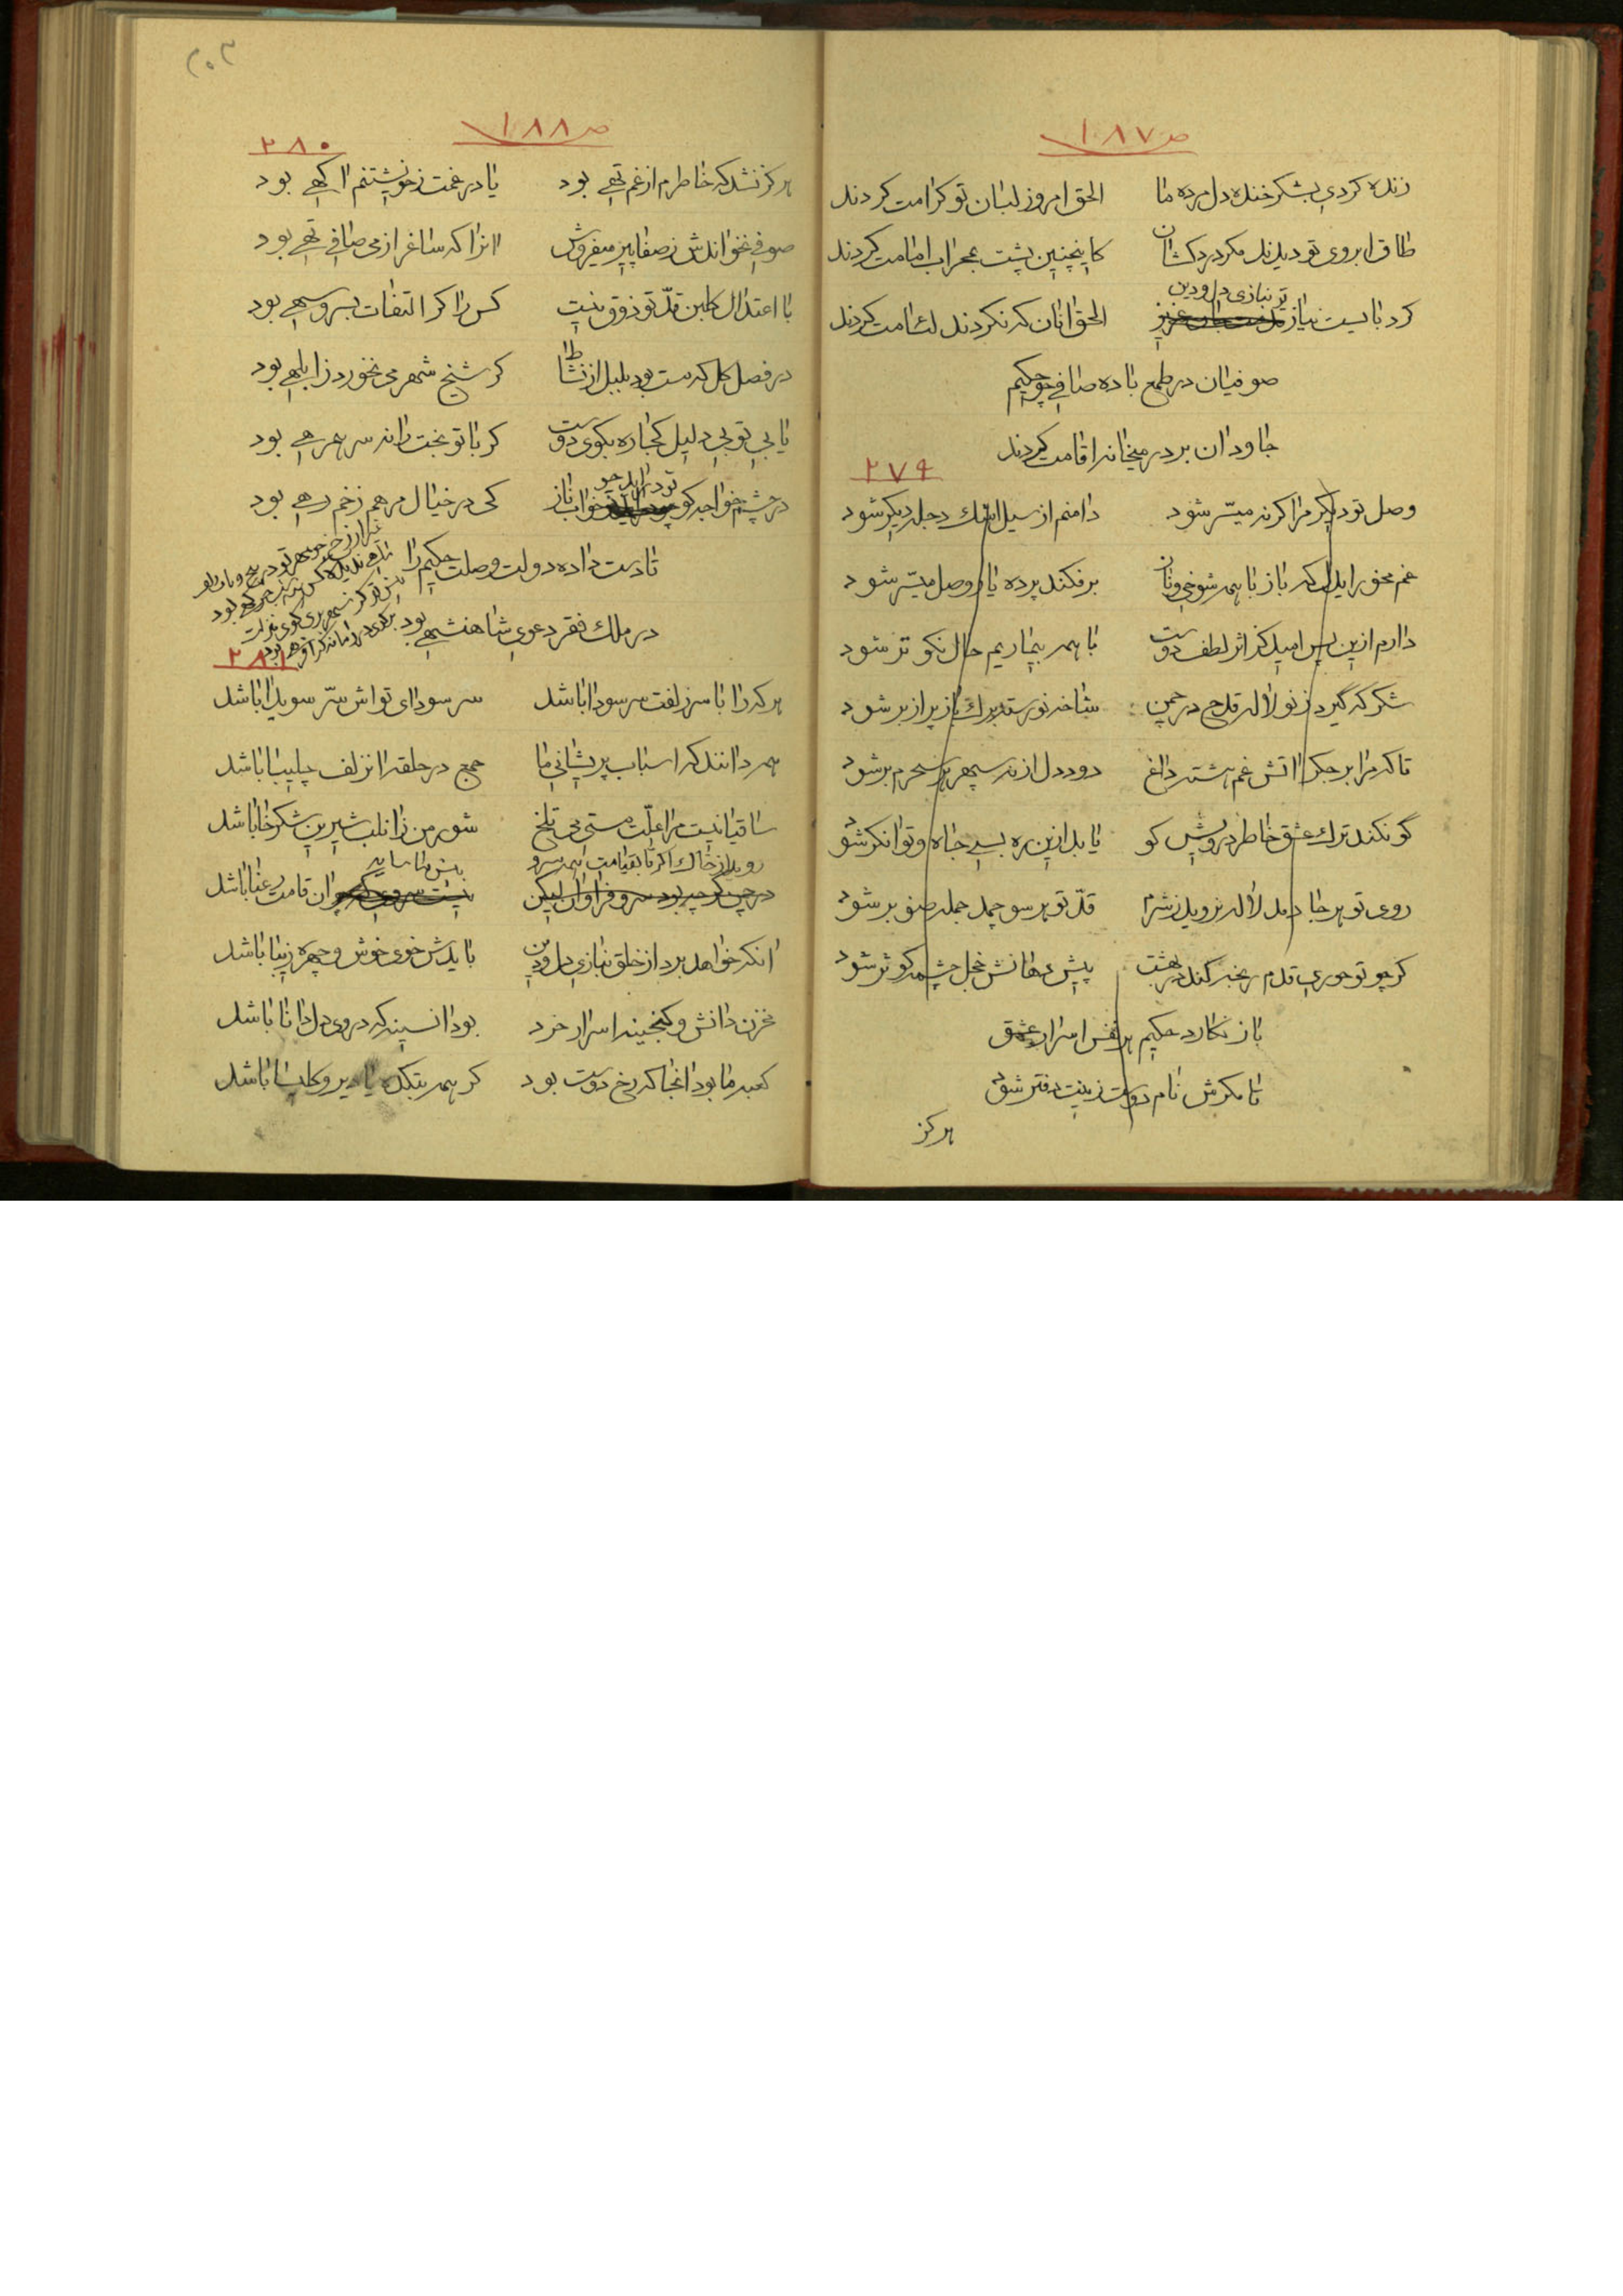 ص ۱۸۷
زنده کردی بشکر خنده دل مرده ما الحق امروز لبان تو کرامت کردند
طاق ابروی تو دیدند مکر دردکشان کاینچنین پشت بمحراب امامت کردند
تو نیازی دل و دین
کرد بایست نیاز الحق انان که نکردند لئامت کردند
صوفیان در طمع باده صافی چو حکیم
جاودان بر در میخانه اقامت کردند
۲۷۹
وصل تو دیکر مرا کرنه میسّر شود دامنم از سیل اشك دجله دیکر شود
غم مخور ایدل که باز با همه شوخی و ناز برفکند پرده یار وصل میسّر شود
دارم ازین پس امید کز اثر لطف دوست با همه بیچاریم حال نکو تر شود
شکر که گیرد ز نو لاله قدح در چمن شاخه نورسته برك باز پر از بر شود
تا که مرا بر جکر اتش غم هشته داغ دود دل از نه سپهر هر سحرم بر شود
گو نکند ترك عشق خاطر درویش کو یابد ازین ره بسی جاه و توانکر شود
روی تو هر جا دمد لاله نروید ز شرم قدّ تو هر سو چمد جمله صنوبر شود
کر چو تو حوری قدم رنجه کند در بهشت پیش دهانش خجل چشمه کوثر شود
باز نکارد حکیم هر نفس اسرار عشق
تا مکرش نام دوست زینت دفتر شود
هرکز
۲۰۳
ص ۱۸۸
۲۸۰
هرکز نشد که خاطرم از غم تهی بود یا در غمت ز خویشتنم اکهی بود
صوفی نخواندش ز صفا پیر میفروش انرا که ساغر از می صافی تهی بود
با اعتدال کلبن قدّ تو ذوق نیست کس را کر التفات بسرو سهی بود
در فصل کل که مست بود بلبل از نشاط کر شیخ شهر می نخورد ز ابلهی بود
یا بی تو بی دلیل کجا ره بکوی دوست کر با تو بخت را نه سر همرهی بود
تو در اید چو
در چشم خواجه کو خواب ناز کی در خیال مرهم زخم رهی بود
تا دست داده دولت وصلت حکیم را
در ملك فقر دعوی شاهنشهی بود
۲۸۱
هر که را با سر زلفت سر سودا باشد سر سودای تواش سرّ سویدا باشد
همه دانند که اسباب پریشانی ما جمع در حلقه انزلف چلیپا باشد
ساقیا نیست مرا علّت مستی می تلخ شور من زانلب شیرین شکرخا باشد
روید از خاك اکر تا بقیامت همه سرو
در چمن کرچه بود سرو فراوان لیکن ان قامت رعنا باشد
انکه خواهد برد از خلق نیازی دل و دین بایدش خوی خوش و چهره زیبا باشد
مخزن دانش و کنجینه اسرار خرد بود انسینه که در وی دل دانا باشد
کعبه ما بود انجا که رخ دوست بود کر همه بتکده یا دیر و کلیسا باشد